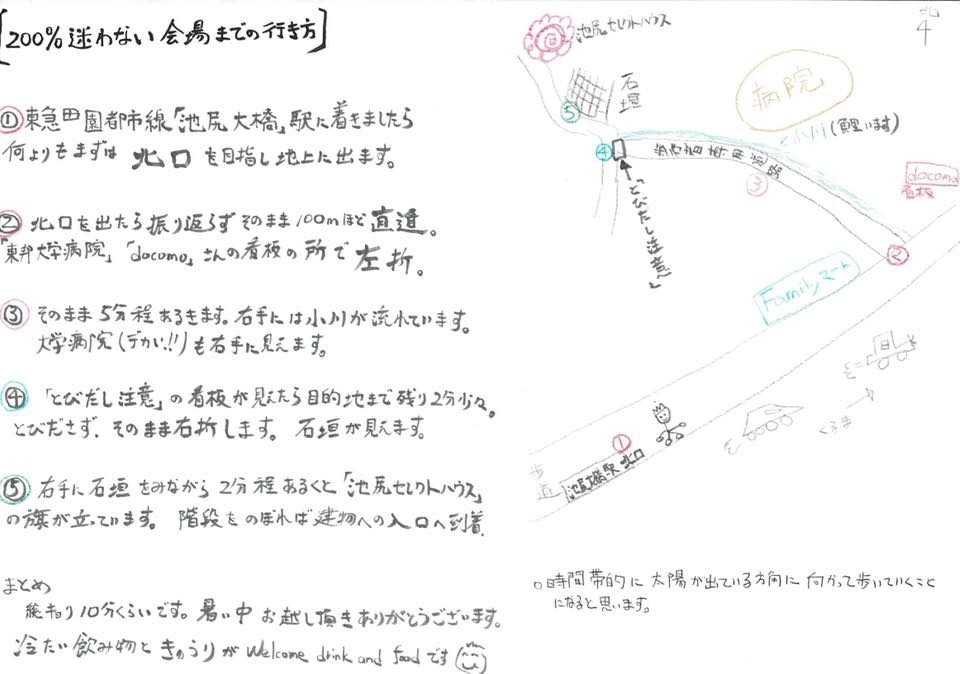 [200%迷わない会場までの行き方]
① 東急田園都市線「池尻大橋」駅に着きましたら
何よりもまずは 北口 を目指し地上に出ます。
② 北口を出たら振り返らずそのまま100mほど直進。
「東邦大学病院」「docomo」さんの看板の所で左折。
③ そのまま5分程あるきます。右手には小川が流れています。
大学病院(デカい!!)も右手に見えます。
④ 「とびだし注意」の看板が見えたら目的地まで残り2分少々。
とびださず、そのまま右折します。 石垣が見えます。
⑤ 右手に石垣をみながら2分程あるくと「池尻セレクトハウス」
の旗が立っています。 階段をのぼれば建物への入口へ到着。
まとめ
10分くらいです。暑い中お越し頂きありがとうございます。
冷たい飲み物ときゅうりがWelcome drink and foodです
池尻セレクトハウス
北
4
石垣
病院
小川(鯉います)
⑤
④
歩行者専用道路
③
docomo
看板
「とびだし注意」
②
Familyマート
くるま
①
歩道
池尻大橋駅 北口
○時間帯的に太陽が出ている方向に向かって歩いていくこと
になると思います。